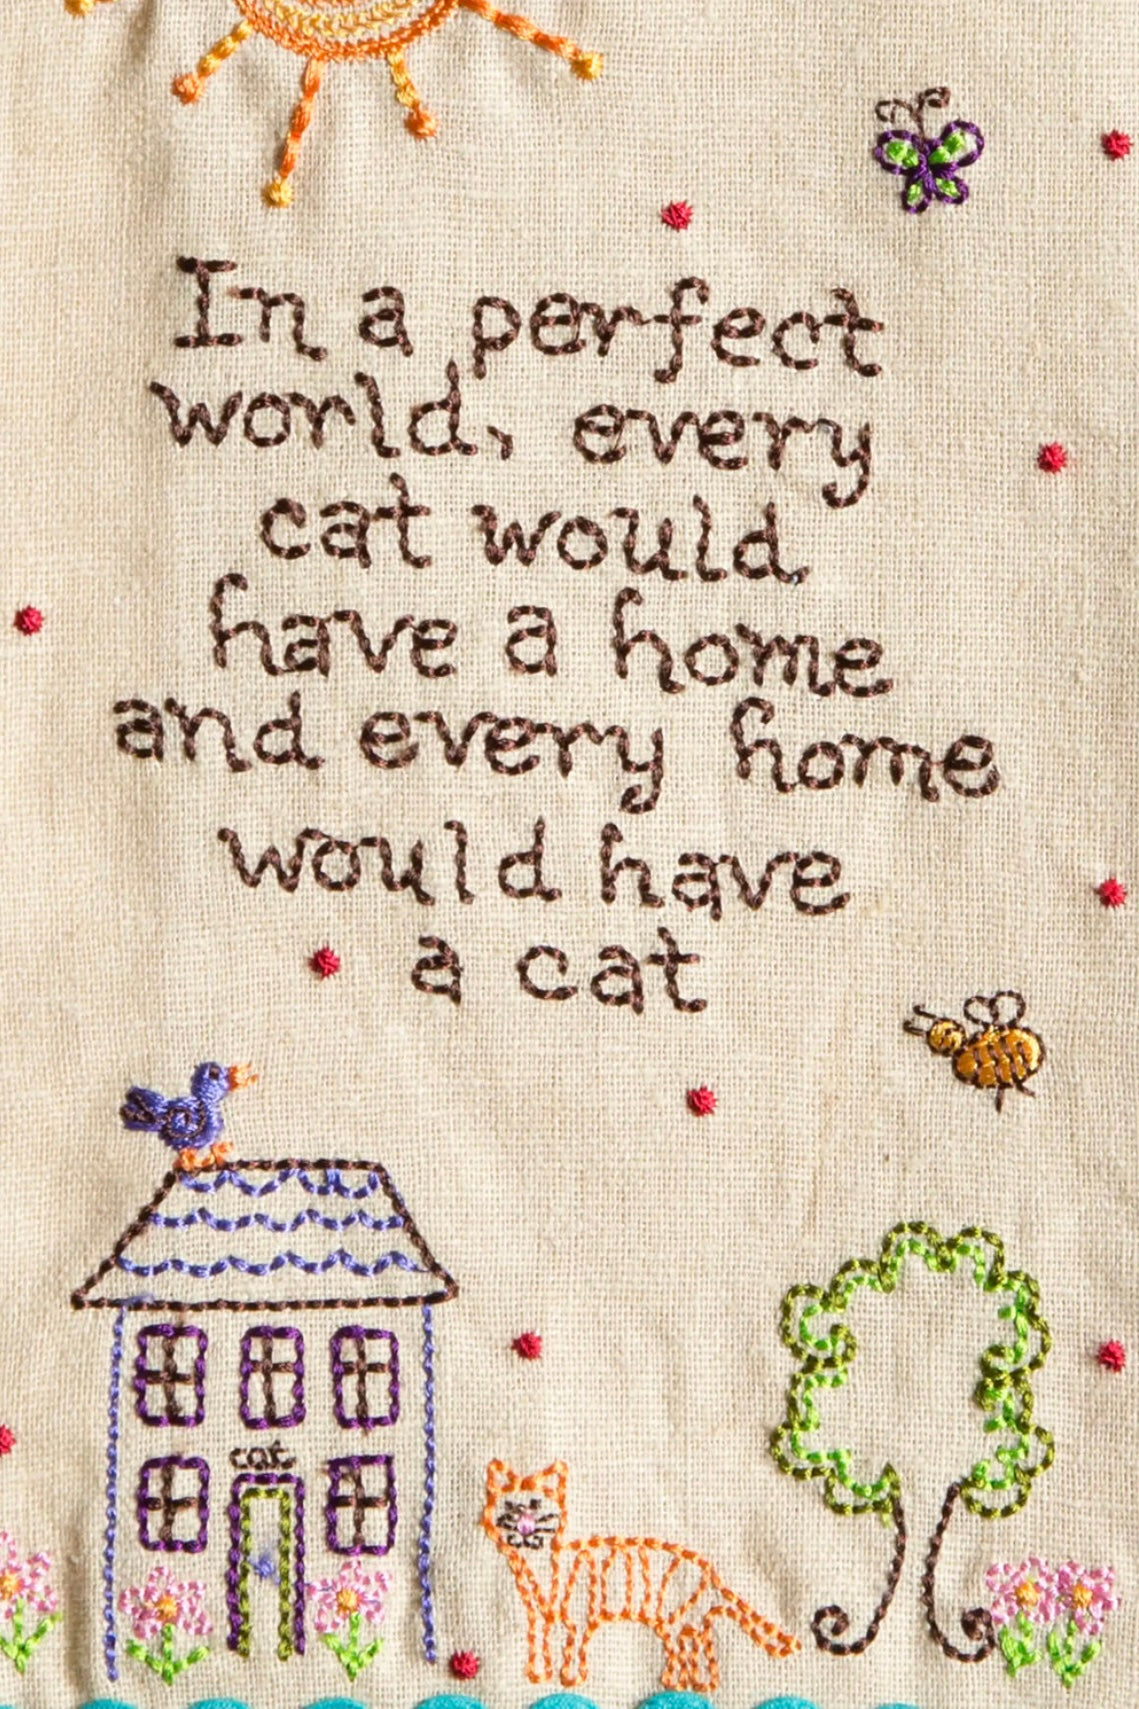 In a perfect
world, every
cat would
have a home
and every home
would have
a cat
cat